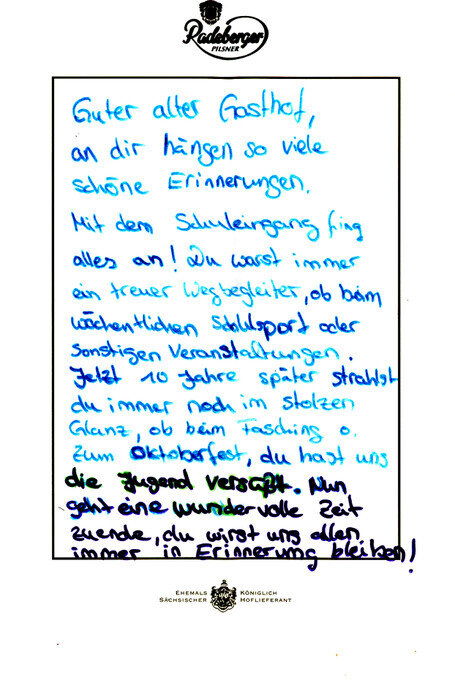 Radeberger
PILSNER
Guter alter Gasthof,
an dir hängen so viele
schöne Erinnerungen.
Mit dem Schuleingang fing
alles an! Du warst immer
ein treuer Wegbegleiter, ob beim
wöchentlichen Schulsport oder
sonstigen Veranstaltungen.
Jetzt 10 Jahre später strahlst
du immer noch im stolzen
Glanz, ob beim Fasching o.
zum Oktoberfest, du hast uns
die Jugend versüßt. Nun
geht eine wundervolle Zeit
zuende, du wirst uns allen
immer in Erinnerung bleiben!
EHEMALS KÖNIGLICH
SÄCHSISCHER HOFLIEFERANT